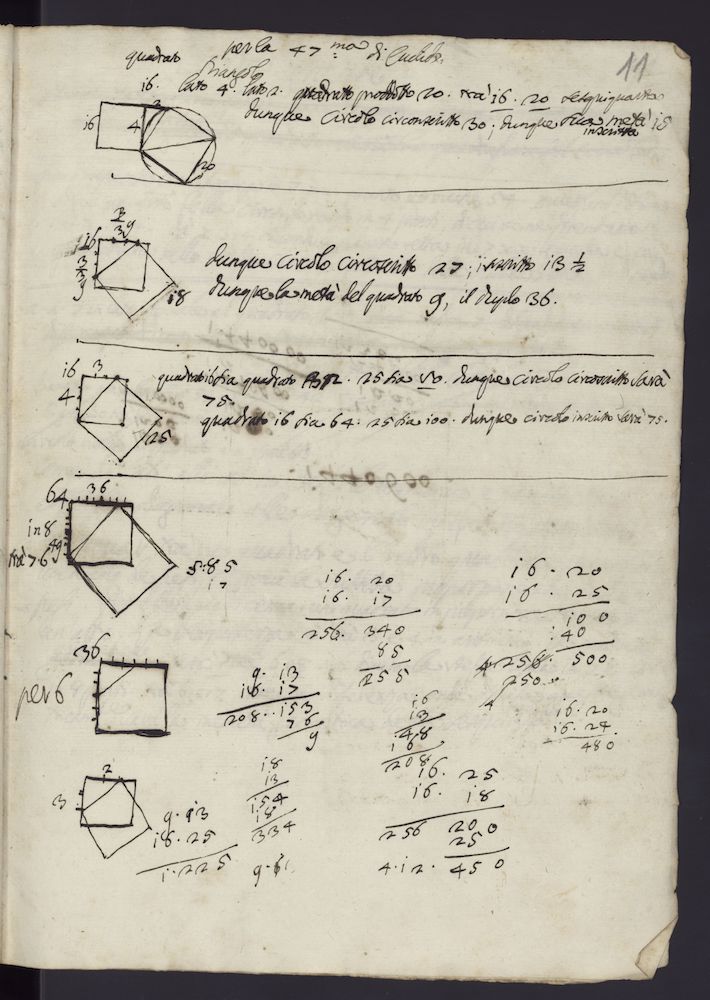 11
quadrato per la 47 ma di Euclide.
triangolo
16. lato 4. lato 2. quadrato prodotto 20. tra 16. 20 sesquiquarta
dunque circolo circonscritto 30; dunque sua metà 15
inscritto
16 4 2
20
2
3 9
16
3
3
9
18
dunque circolo circoscritto 27; inscritto 13 1/2
dunque la metà del quadrato 9, il duplo 36.
16 3
4
25
quadrato 16 fia quadrato 25 fia 50. dunque circolo circonscritto sarà
75.
quadrato 16 fia 64. 25 fia 100. dunque circolo inscritto sarà 75.
64 36
in 8
49
tra 7. 6
85
17
16. 20
16. 17
256. 340
85
255
16. 20
16. 25
100
40
256. 500
250
36
per 6
9. 13
16. 17
208. 153
76
9
16
13
48
16
208
16. 20
16. 24
480
2
3
18
13
154
18
334
9. 13
18. 25
1. 225
9. 6
16. 25
16. 18
256 200
25
4. 12. 450